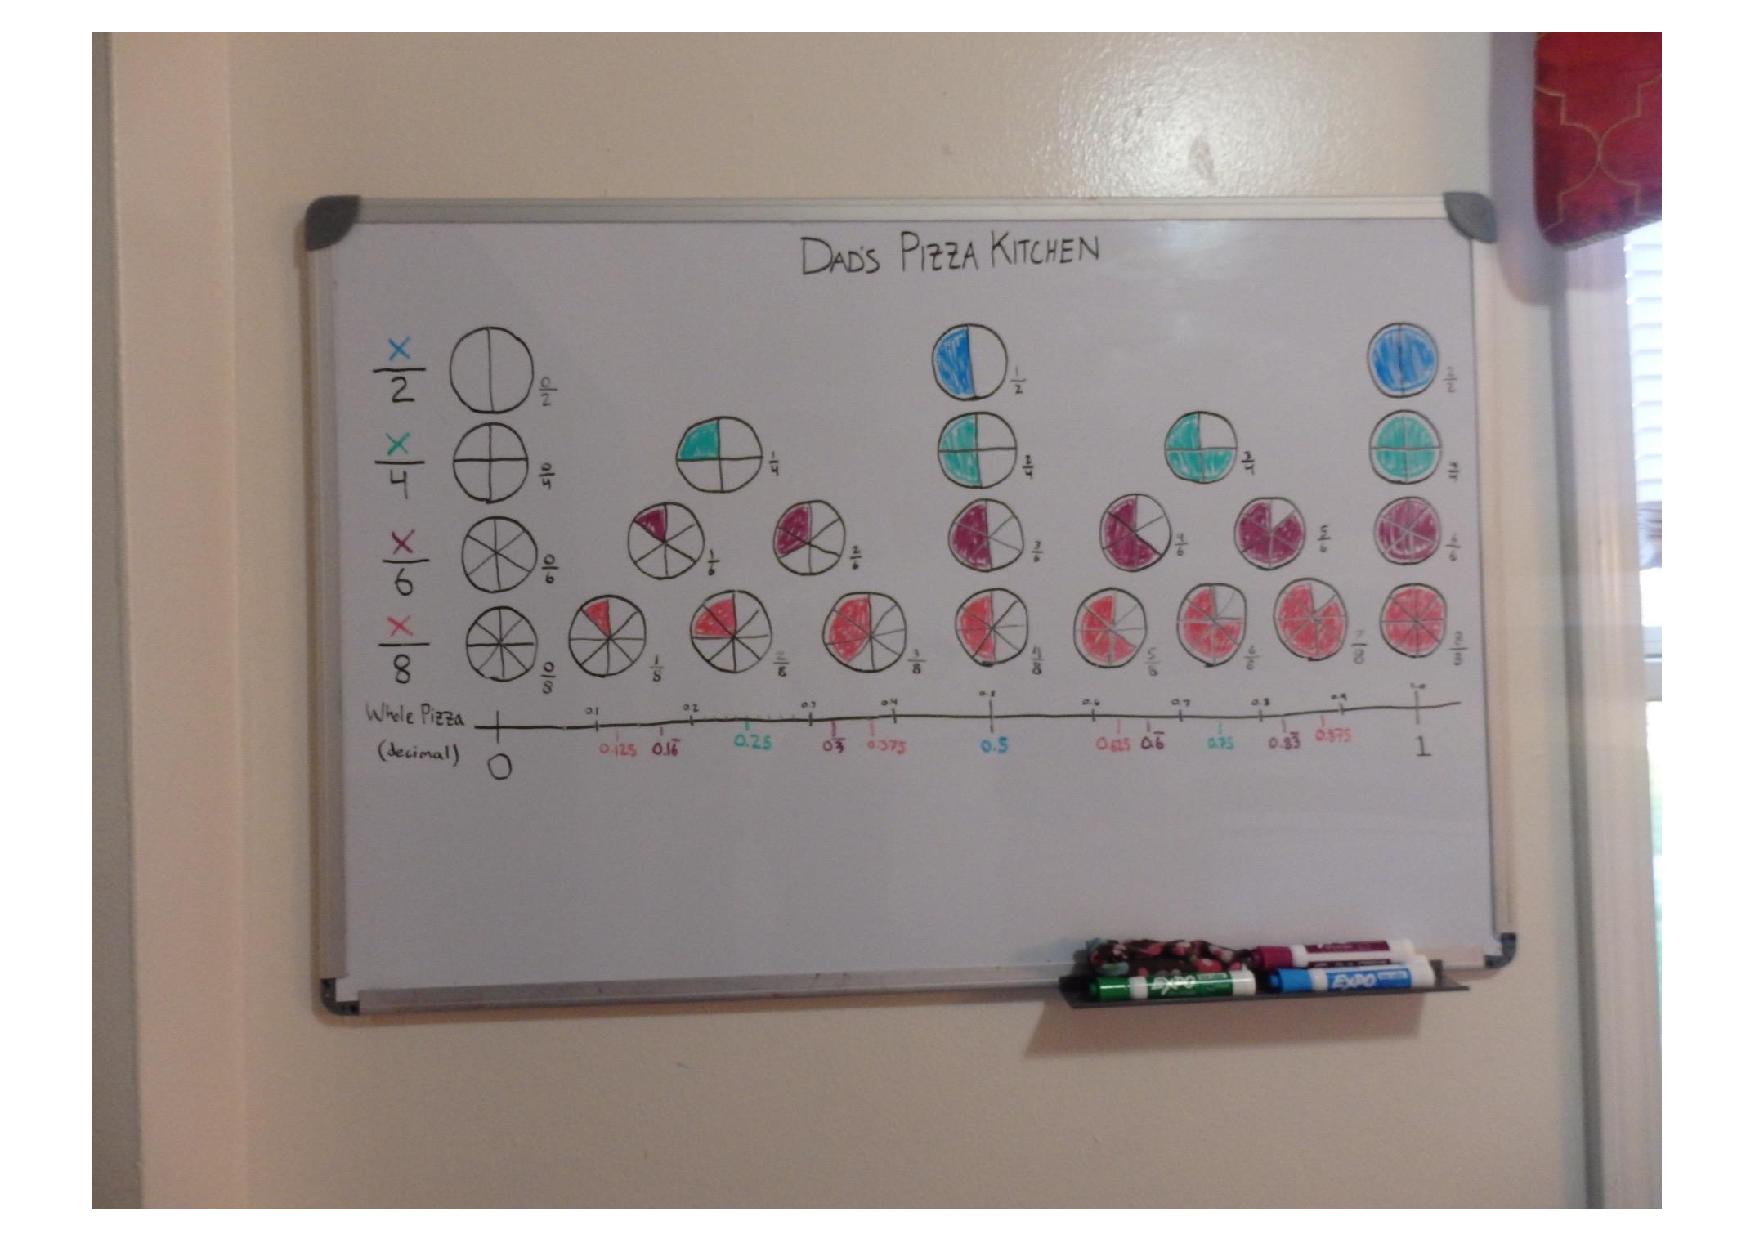 DAD'S PIZZA KITCHEN
x/2 0/2 1/2 2/2
x/4 0/4 1/4 2/4 3/4
x/6 0/6 1/6 2/6 3/6 4/6 5/6 6/6
x/8 0/8 1/8 2/8 3/8 4/8 5/8 6/8 7/8 8/8
Whole Pizza 0.1 0.2 0.3 0.4 0.5 0.6 0.7 0.8 0.9 1.0
(decimal) 0 0.125 0.16̅ 0.25 0.3̅ 0.375 0.5 0.625 0.6̅ 0.75 0.83̅ 0.875 1
EXPO EXPO